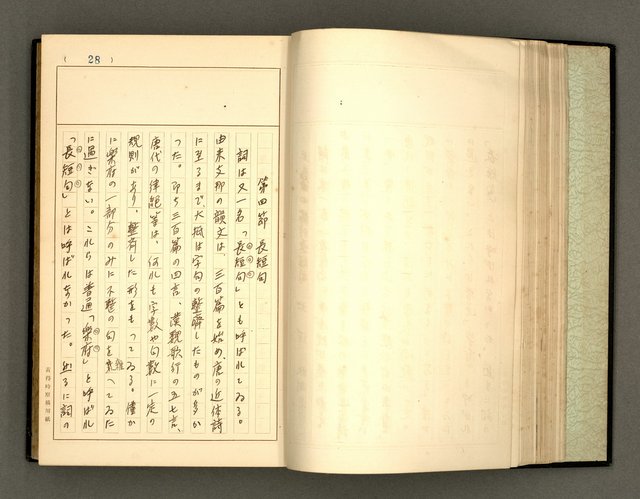 ( 28 )
第四節 長短句
詞は又一名「長短句」とも呼ばれてゐる。
由来支那の韻文は、三百篇を始め、唐の近体詩
に至るまで、大抵は字句の整齊したものが多か
つた。即ち三百篇の四言、漢魏歌行の五七言、
唐代の律絶等は、何れも字数や句数に一定の
規則があり、整斉した形をもつてゐる。僅か
に樂府の一部分のみに不整の句を雜へてゐた
に過ぎない。これらは普通「樂府」と呼ばれ
「長短句」とは呼ばれなかつた。然るに詞の
原稿用紙